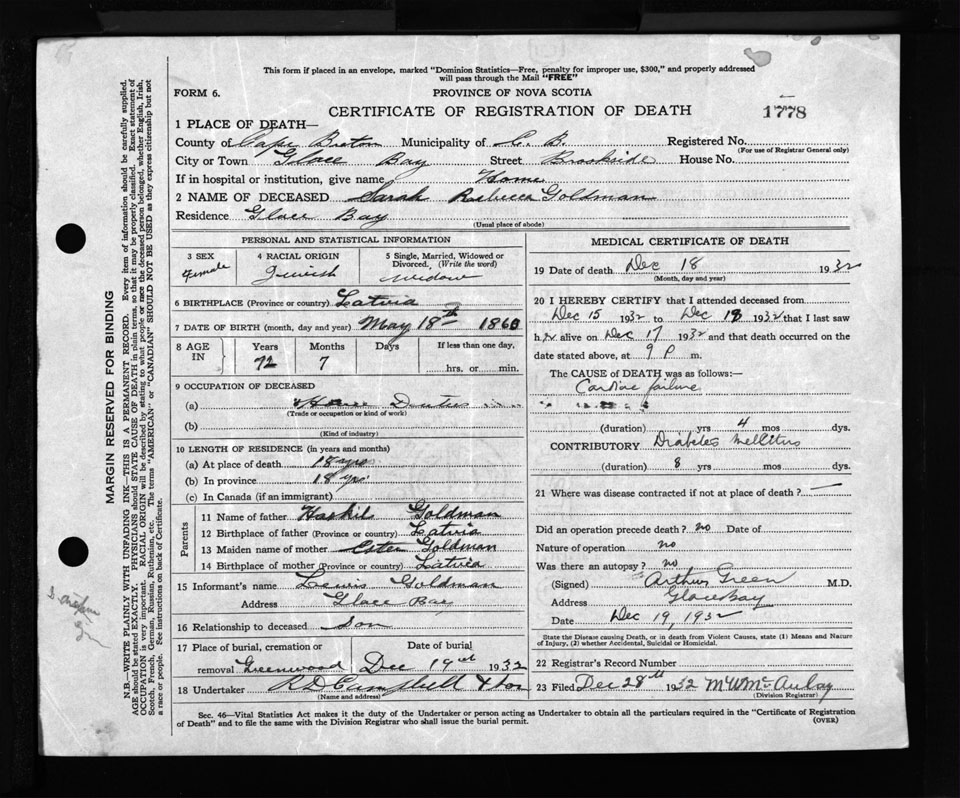 This form if placed in an envelope, marked "Dominion Statistics—Free, penalty for improper use, $300," and properly addressed
will pass through the Mail "FREE"
FORM 6. PROVINCE OF NOVA SCOTIA
CERTIFICATE OF REGISTRATION OF DEATH 1778
1 PLACE OF DEATH—
County of Cape Breton Municipality of C. B. Registered No.
(For use of Registrar General only)
City or Town Glace Bay Street Brookside House No.
If in hospital or institution, give name Home
2 NAME OF DECEASED Sarah Rebecca Goldman
Residence Glace Bay
(Usual place of abode)
PERSONAL AND STATISTICAL INFORMATION
3 SEX 4 RACIAL ORIGIN 5 Single, Married, Widowed or
Divorced. (Write the word)
Female Jewish Widow
6 BIRTHPLACE (Province or country) Latvia
7 DATE OF BIRTH (month, day and year) May 18th 1860
8 AGE IN Years Months Days If less than one day,
72 7 hrs. or min.
9 OCCUPATION OF DECEASED
(a) House Duties
(Trade or occupation or kind of work)
(b)
(Kind of industry)
10 LENGTH OF RESIDENCE (in years and months)
(a) At place of death 18 yrs
(b) In province 18 yrs
(c) In Canada (if an immigrant)
Parents
11 Name of father Haskil Goldman
12 Birthplace of father (Province or country) Latvia
13 Maiden name of mother Ester Goldman
14 Birthplace of mother (Province or country) Latvia
15 Informant's name Lewis Goldman
Address Glace Bay
16 Relationship to deceased Son
17 Place of burial, cremation or Date of burial
removal Greenwood Dec 19th 1932
18 Undertaker R D Campbell & Son
(Name and address)
MEDICAL CERTIFICATE OF DEATH
19 Date of death Dec 18 1932
(Month, day and year)
20 I HEREBY CERTIFY that I attended deceased from
Dec 15 1932 to Dec 18 1932 that I last saw
h er alive on Dec 17 1932 and that death occurred on the
date stated above, at 9 P m.
The CAUSE of DEATH was as follows:
Cardiac failure
(duration) yrs 4 mos dys.
CONTRIBUTORY Diabetes Mellitus
(duration) 8 yrs mos dys.
21 Where was disease contracted if not at place of death? —
Did an operation precede death? no Date of
Nature of operation no
Was there an autopsy? no
(Signed) Arthur Green M.D.
Address Glace Bay
Date Dec 19, 1932
State the Disease causing Death, or in death from Violent Causes, state (1) Means and Nature
of Injury, (2) whether Accidental, Suicidal or Homicidal.
22 Registrar's Record Number
23 Filed Dec 28th 1932 M W McAulay
(Division Registrar)
Sec. 46—Vital Statistics Act makes it the duty of the Undertaker or person acting as Undertaker to obtain all the particulars required in the "Certificate of Registration
of Death" and to file the same with the Division Registrar who shall issue the burial permit. (OVER)
MARGIN RESERVED FOR BINDING
N.B.—WRITE PLAINLY WITH UNFADING INK—THIS IS A PERMANENT RECORD. Every item of information should be carefully supplied.
AGE should be stated EXACTLY. PHYSICIANS should STATE CAUSE OF DEATH in plain terms, so that it may be properly classified. Exact statement of
OCCUPATION is very important. RACIAL ORIGIN will be described by stating to what people or race the deceased person belonged, whether English, Irish,
Scotch, French, German, Russian, Ruthenian, etc. The terms "AMERICAN" or "CANADIAN" SHOULD NOT BE USED as they express citizenship but not
a race or people. See instructions on back of Certificate.